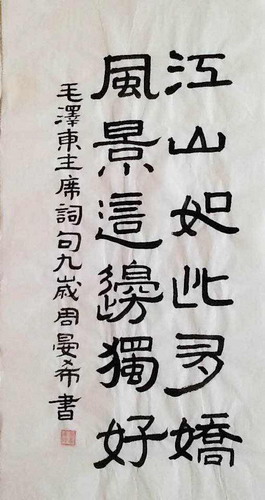 江山如此多嬌
風景這邊獨好
毛澤東主席詞句九歲周晏希書